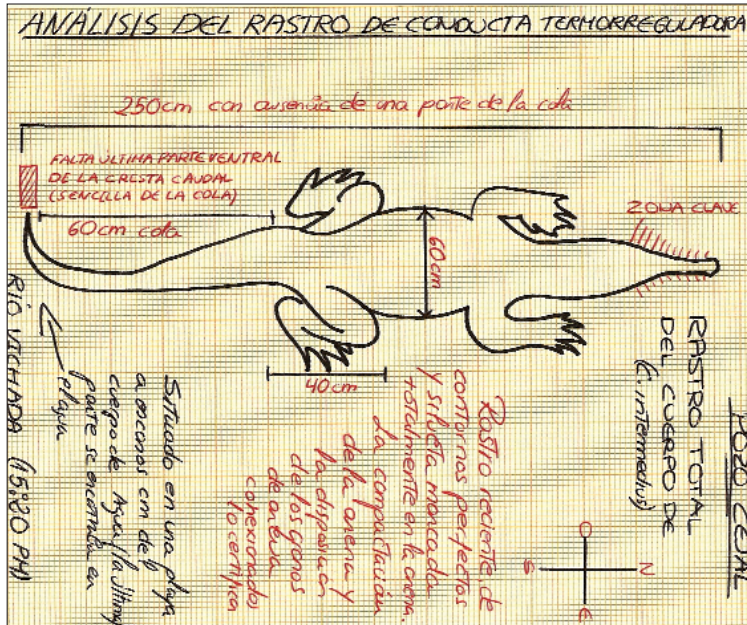 ANÁLISIS DEL RASTRO DE CONDUCTA TERMORREGULADORA
250cm con ausencia de una parte de la cola
FALTA ÚLTIMA PARTE VENTRAL
DE LA CRESTA CAUDAL
(SENCILLA DE LA COLA)
60cm cola
60cm
ZONA CLAVE
40cm
POZO CEJAL
RASTRO TOTAL
DEL CUERPO DE
(C. intermedius)
Rastro reciente, de
contornos perfectos
y silueta marcada
totalmente en la arena.
La compactación
de la arena y
la disposición
de los granos
de arena
cohexionados
lo certifica
Situado en una playa
a escasos cm de
cuerpo de Agua y la última
parte se encontraba en
playa
RÍO VICHADA (15:20 PM)
O
S
N
E